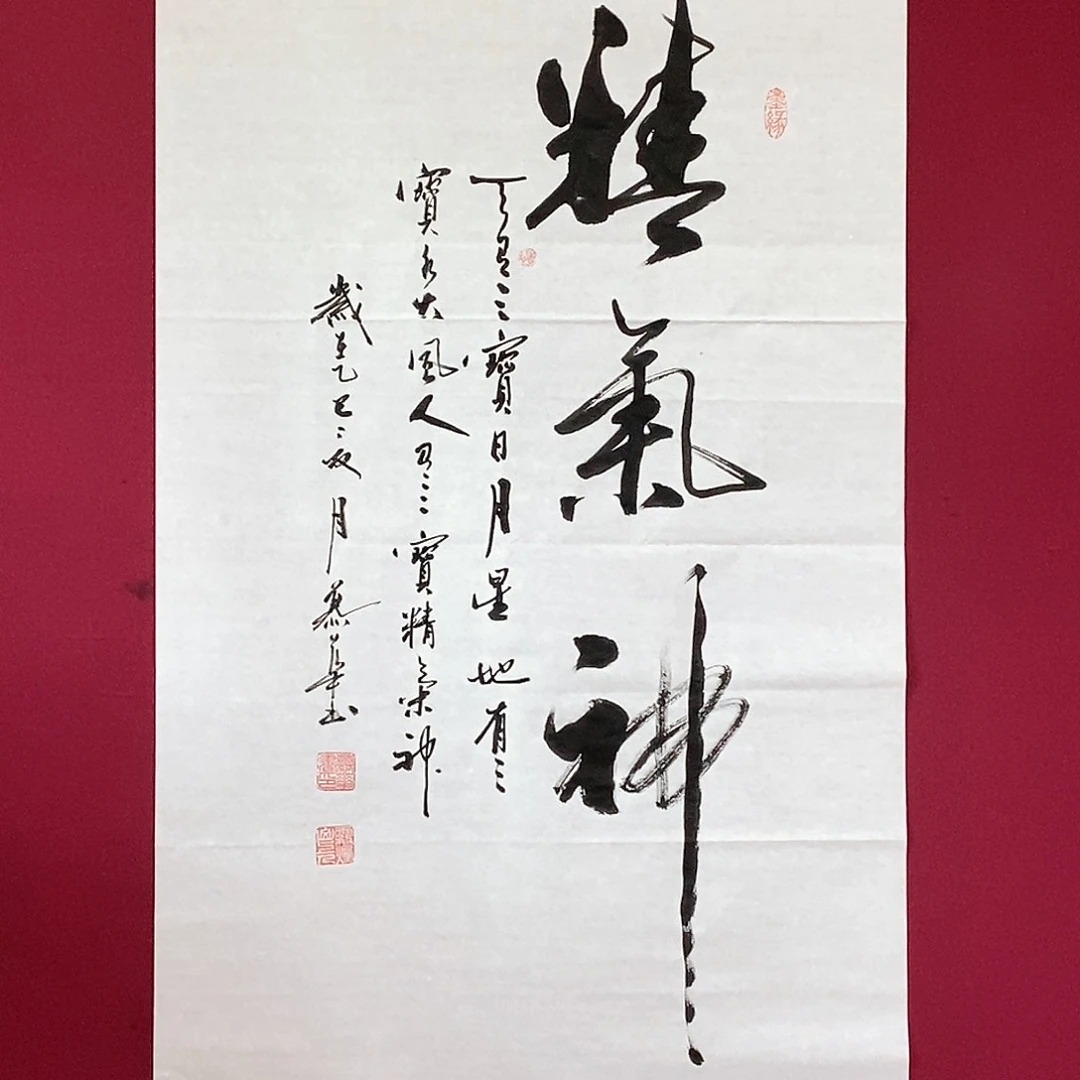 精氣神
天有三寶日月星地有三
寶水火風人有三寶精氣神
歲在乙巳二月慕華書
墨緣